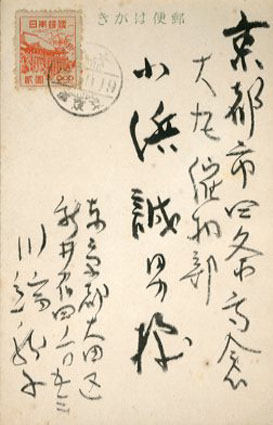 郵便はがき
日本郵便
貳圓
2.00
京都市四条高倉
大丸催物部
小浜誠男様
東京都大田区
新井宿四ノ一〇五三
川端龍子